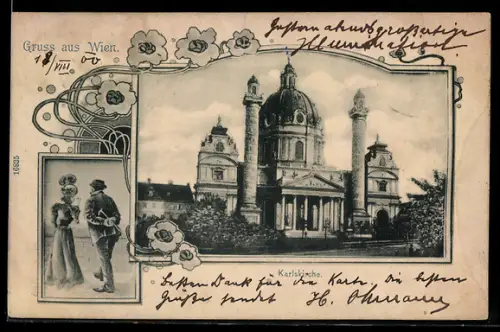 Gruss aus Wien.
18/VIII 00
Gestern abends großartige
Illumination.
16835
Karlskirche.
Besten Dank für die Karte, die besten
Grüße sendet H.